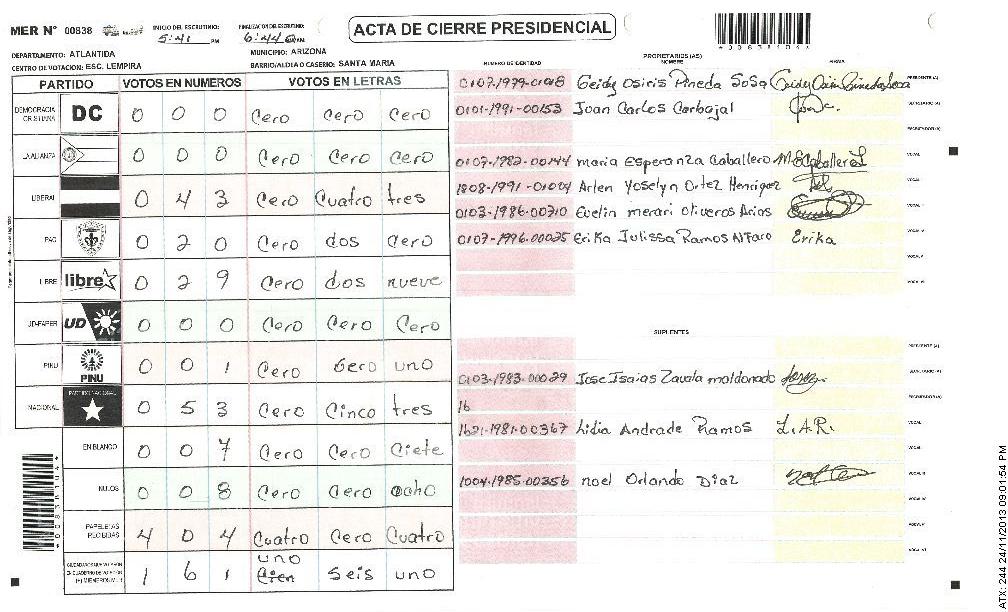 MER N° 00838
INICIO DEL ESCRUTINIO: 5:41 PM
FINALIZACION DEL ESCRUTINIO: 6:44
ACTA DE CIERRE PRESIDENCIAL
DEPARTAMENTO: ATLANTIDA
MUNICIPIO: ARIZONA
CENTRO DE VOTACION: ESC. LEMPIRA
BARRIO/ALDEA O CASERIO: SANTA MARIA
PARTIDO VOTOS EN NUMEROS VOTOS EN LETRAS
DEMOCRACIA CRISTIANA DC 0 0 0 Cero Cero Cero
LA ALIANZA 0 0 0 Cero Cero Cero
LIBERAL 0 4 3 Cero Cuatro tres
PAC 0 2 0 Cero dos Cero
LIBRE libre 0 2 9 Cero dos nueve
UD-FAPER UD 0 0 0 Cero Cero Cero
PINU PINU 0 0 1 Cero Cero uno
NACIONAL PARTIDO NACIONAL 0 5 3 Cero Cinco tres
EN BLANCO 0 0 7 Cero Cero Ciete
NULOS 0 0 8 Cero Cero ocho
PAPELETAS RECIBIDAS 4 0 4 Cuatro Cero Cuatro
1 6 1 uno Cien Seis uno
NUMERO DE IDENTIDAD
PROPIETARIOS (AS)
NOMBRE
FIRMA
Geidy Osiris Pineda Sosa PRESIDENTE (A)
0101-1991-00153 Joan Carlos Carbajal SECRETARIO (A)
ESCRUTADOR (A)
0107-1982-00144 maria Esperanza Caballero VOCAL
Arlen Yoselyn Ortez Henriquez VOCAL
0103-1986-00710 Evelin merari Oliveros Arias VOCAL
0107-1996-00025 Erika Julissa Ramos Alfaro Erika VOCAL
VOCAL
VOCAL
SUPLENTES
PRESIDENTE (A)
0103-1983-00029 Jose Isaias Zavala maldonado SECRETARIO (A)
16 ESCRUTADOR (A)
1621-1981-00367 Lidia Andrade Ramos L.A.R. VOCAL
VOCAL
1004-1985-00356 noel Orlando Diaz VOCAL
VOCAL
VOCAL
VOCAL
ATX: 244 24/11/2013 09:01:54 PM